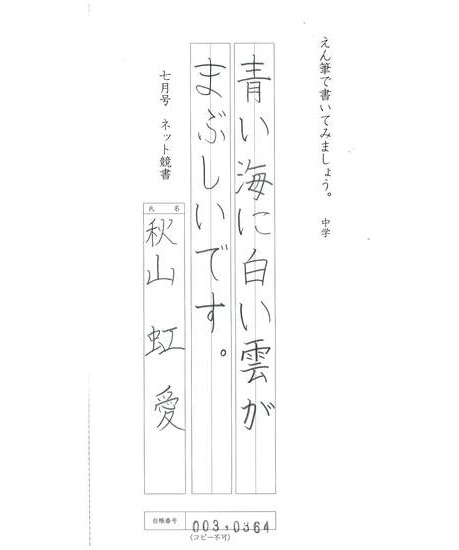 えん筆で書いてみましょう。 中学
青い海に白い雲が
まぶしいです。
七月号 ネット競書
氏 名
秋山 虹愛
台帳番号 003,0364
(コピー不可)